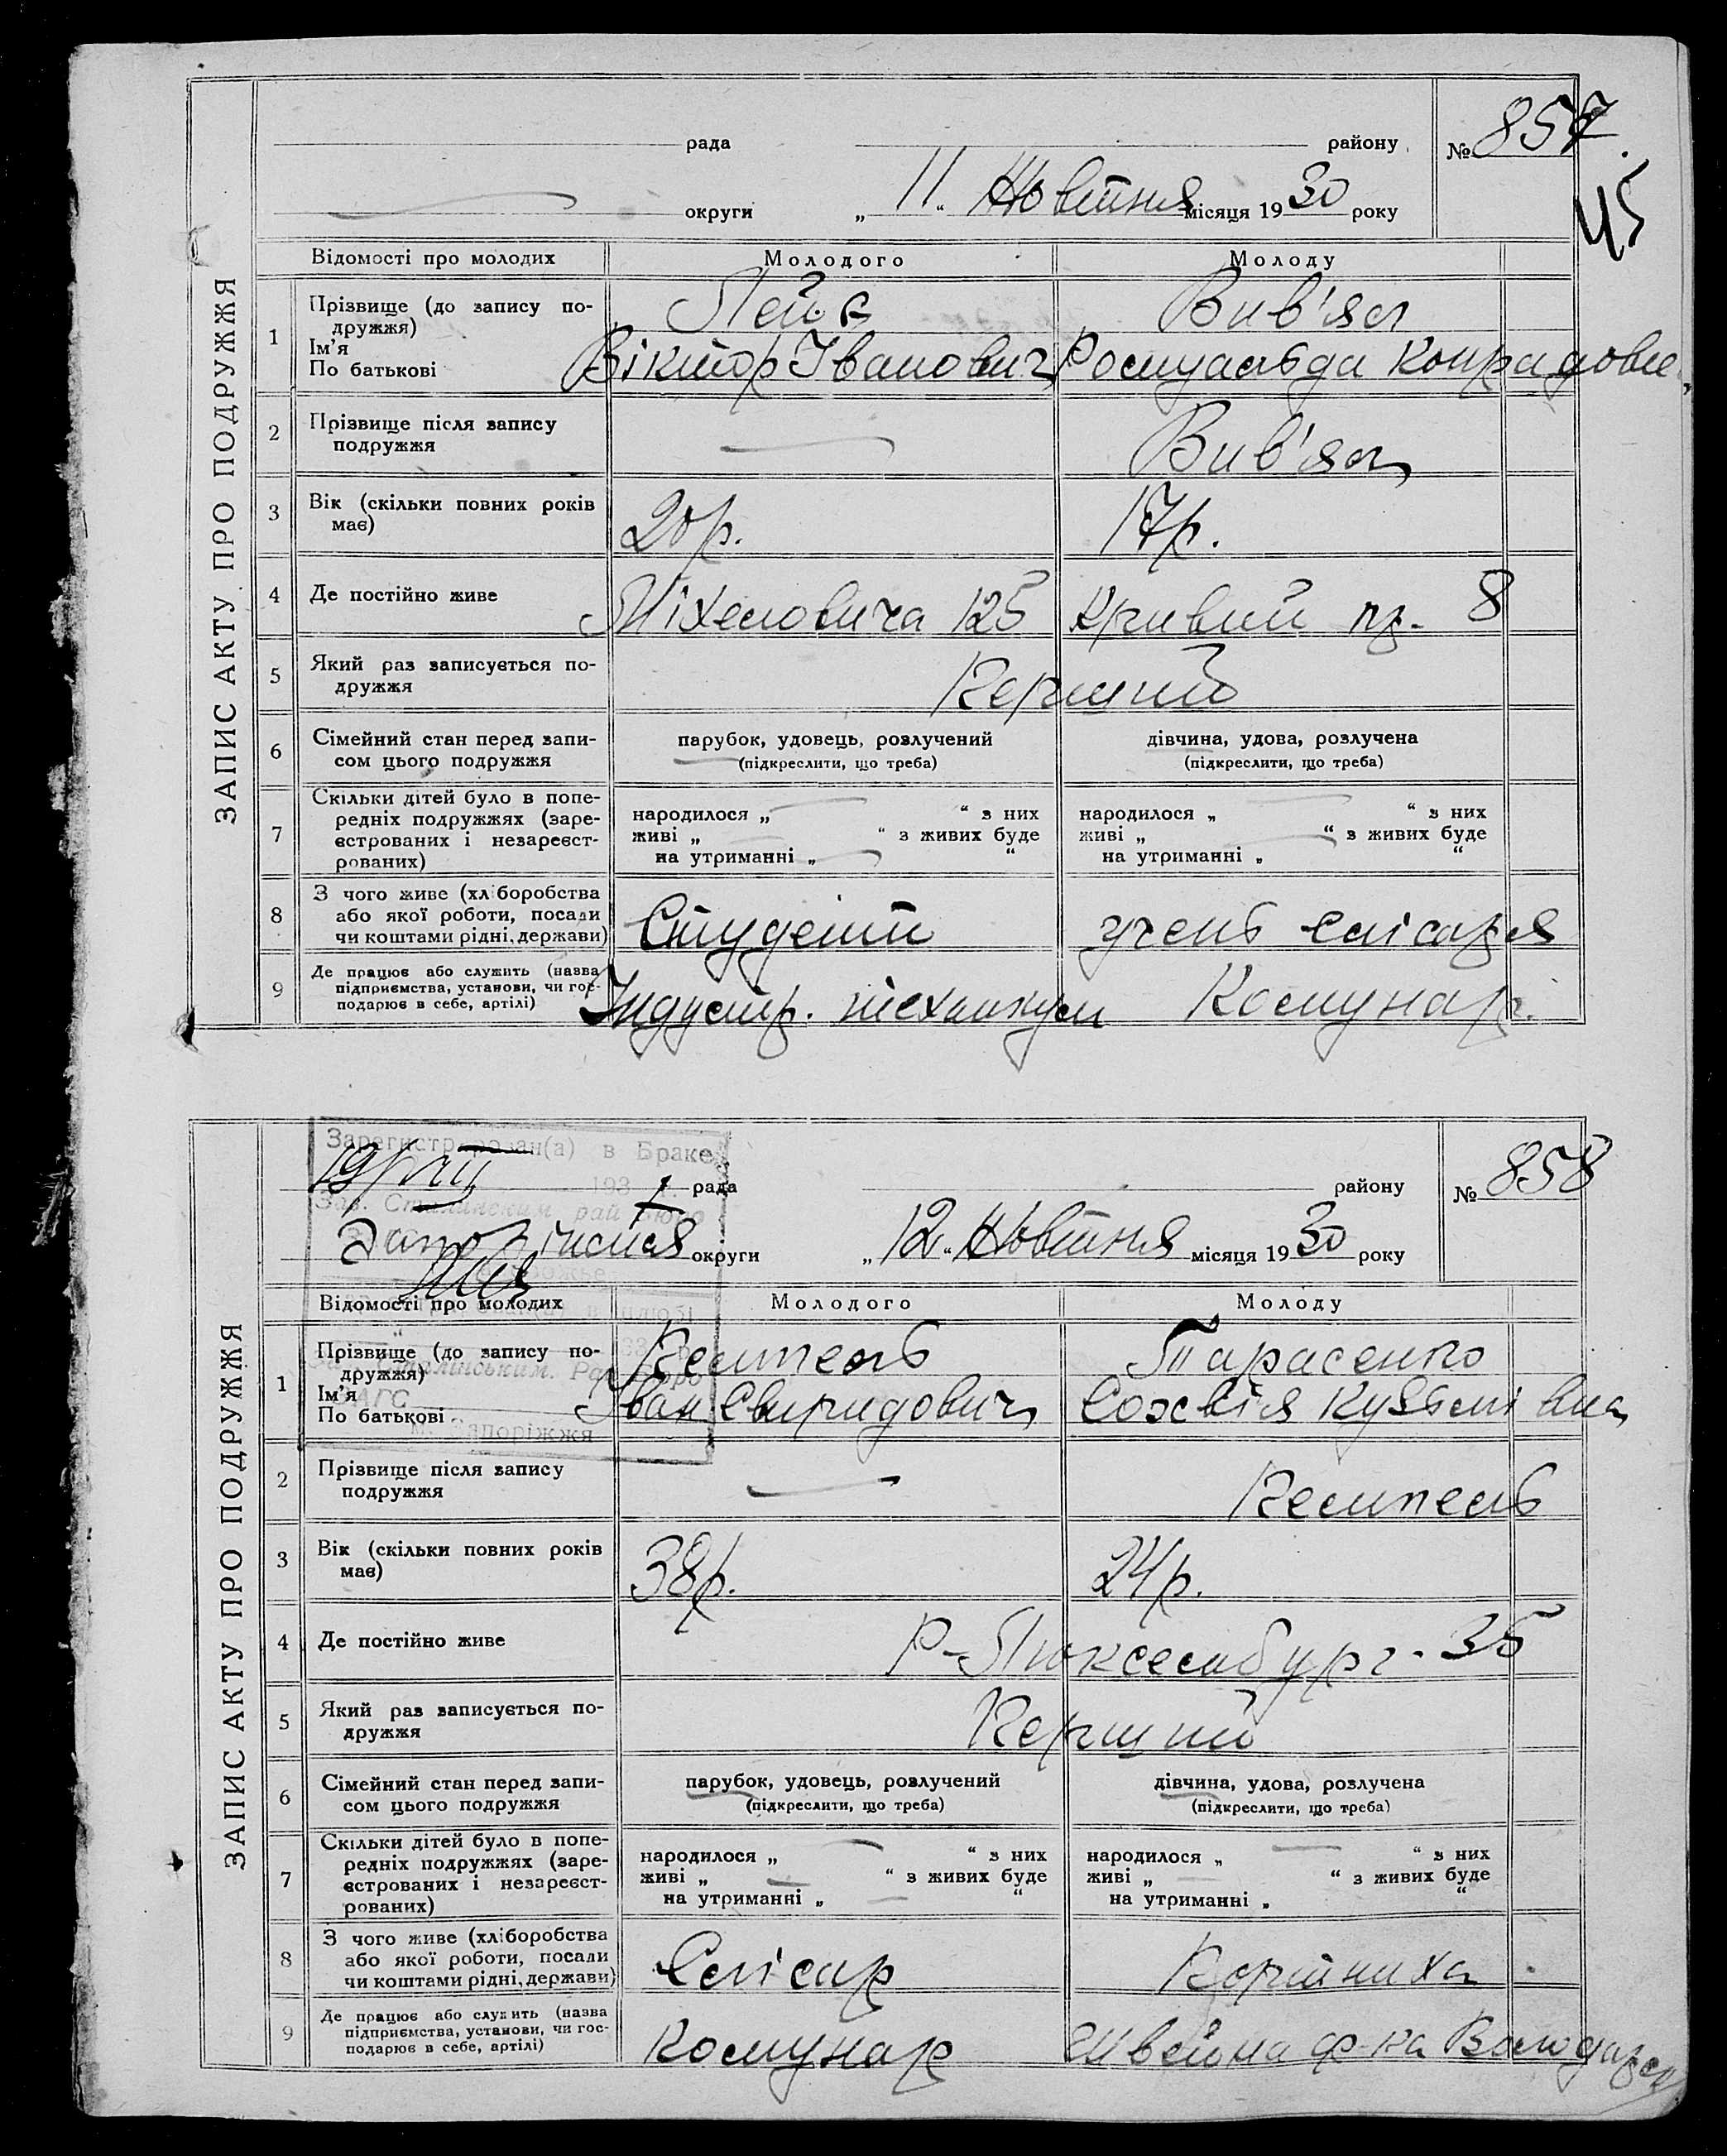 ЗАПИС АКТУ ПРО ПОДРУЖЖЯ
рада району № 857
45
округи „ 11 “ Жовтня місяця 1930 року
Відомості про молодих Молодого Молоду
1 Прізвище (до запису по-
дружжя)
Ім'я
По батькові
Вів'ял
Віктор Іванович Ромуальда Конрадовн
2 Прізвище після запису
подружжя
3 Вік (скільки повних років
має)
20р. 17р.
4 Де постійно живе
125 Кривий 8
5 Який раз записується по-
дружжя
Перший
6 Сімейний стан перед запи-
сом цього подружжя
парубок, удовець, розлучений
(підкреслити, що треба)
дівчина, удова, розлучена
(підкреслити, що треба)
7 Скільки дітей було в попе-
редніх подружжях (заре-
єстрованих і незареєст-
рованих)
народилося „ “ з них
живі „ “ з живих буде
на утриманні „ “
народилося „ “ з них
живі „ “ з живих буде
на утриманні „ “
8 З чого живе (хліборобства
або якої роботи, посади
чи коштами рідні, держави)
Студент учень слісаря
9 Де працює або служить (назва
підприємства, установи, чи гос-
подарює в себе, артілі)
Індустр. технікум Комунар.
ЗАПИС АКТУ ПРО ПОДРУЖЖЯ
Зарегистрирован(а) в Браке
193
рада району № 858
Зав. Сталинским рай Бюро
округи „ 12 “ Жовтня місяця 1930 року
Відомості про молодих Молодого Молоду
1 Прізвище (до запису по-
дружжя)
Ім'я
По батькові
Кемпель Тарасенко
Іван Свиридович Софія Кузьмівна
м. Запоріжжя
2 Прізвище після запису
подружжя
Кемпель
3 Вік (скільки повних років
має)
38р. 24р.
4 Де постійно живе
Р-Люксембург-35
5 Який раз записується по-
дружжя
Перший
6 Сімейний стан перед запи-
сом цього подружжя
парубок, удовець, розлучений
(підкреслити, що треба)
дівчина, удова, розлучена
(підкреслити, що треба)
7 Скільки дітей було в попе-
редніх подружжях (заре-
єстрованих і незареєст-
рованих)
народилося „ “ з них
живі „ “ з живих буде
на утриманні „ “
народилося „ “ з них
живі „ “ з живих буде
на утриманні „ “
8 З чого живе (хліборобства
або якої роботи, посади
чи коштами рідні, держави)
Слісар
9 Де працює або служить (назва
підприємства, установи, чи гос-
подарює в себе, артілі)
Комунар Швейна ф-ка